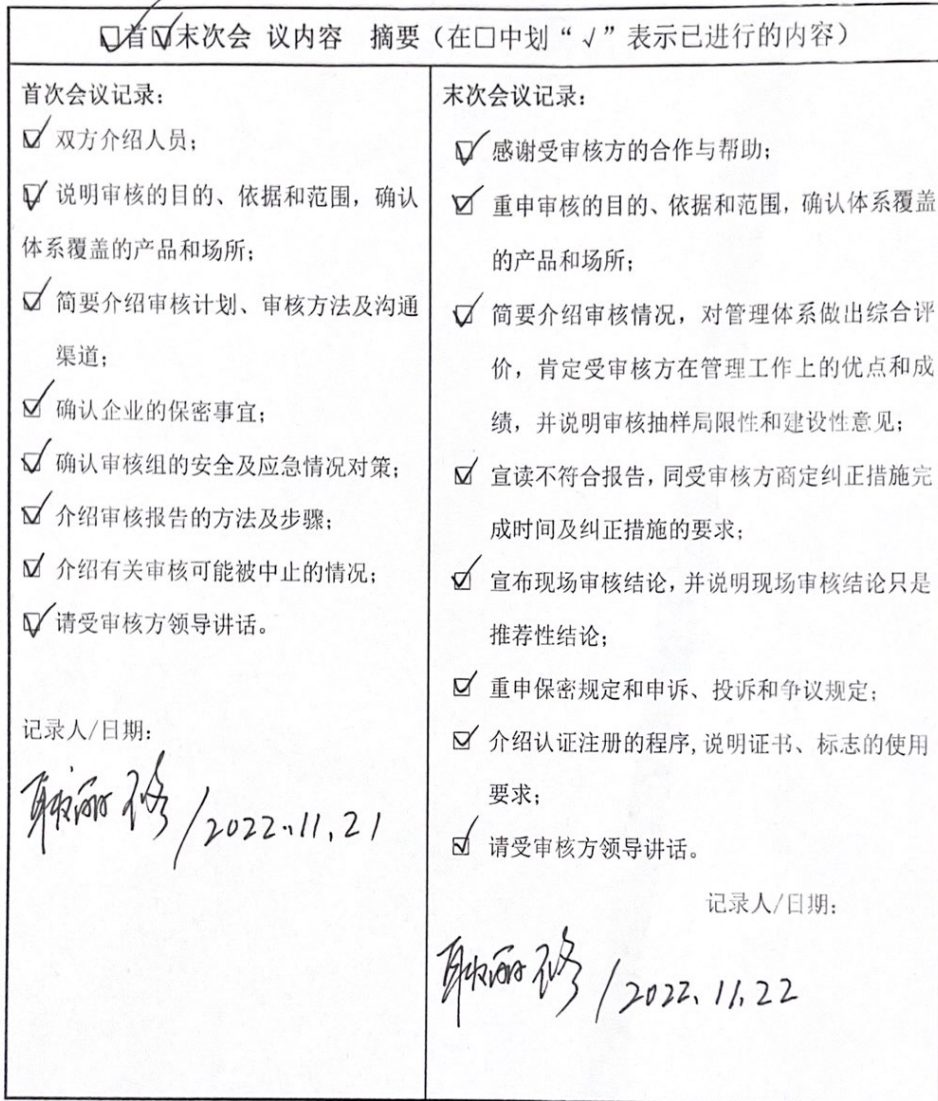 ☑首☑末次会 议内容 摘要（在□中划“√”表示已进行的内容）
首次会议记录：
☑ 双方介绍人员；
☑ 说明审核的目的、依据和范围，确认
体系覆盖的产品和场所；
☑ 简要介绍审核计划、审核方法及沟通
渠道；
☑ 确认企业的保密事宜；
☑ 确认审核组的安全及应急情况对策；
☑ 介绍审核报告的方法及步骤；
☑ 介绍有关审核可能被中止的情况；
☑ 请受审核方领导讲话。
记录人/日期：
/2022.11.21
末次会议记录：
☑ 感谢受审核方的合作与帮助；
☑ 重申审核的目的、依据和范围，确认体系覆盖
的产品和场所；
☑ 简要介绍审核情况，对管理体系做出综合评
价，肯定受审核方在管理工作上的优点和成
绩，并说明审核抽样局限性和建设性意见；
☑ 宣读不符合报告，同受审核方商定纠正措施完
成时间及纠正措施的要求；
☑ 宣布现场审核结论，并说明现场审核结论只是
推荐性结论；
☑ 重申保密规定和申诉、投诉和争议规定；
☑ 介绍认证注册的程序，说明证书、标志的使用
要求；
☑ 请受审核方领导讲话。
记录人/日期：
/2022.11.22